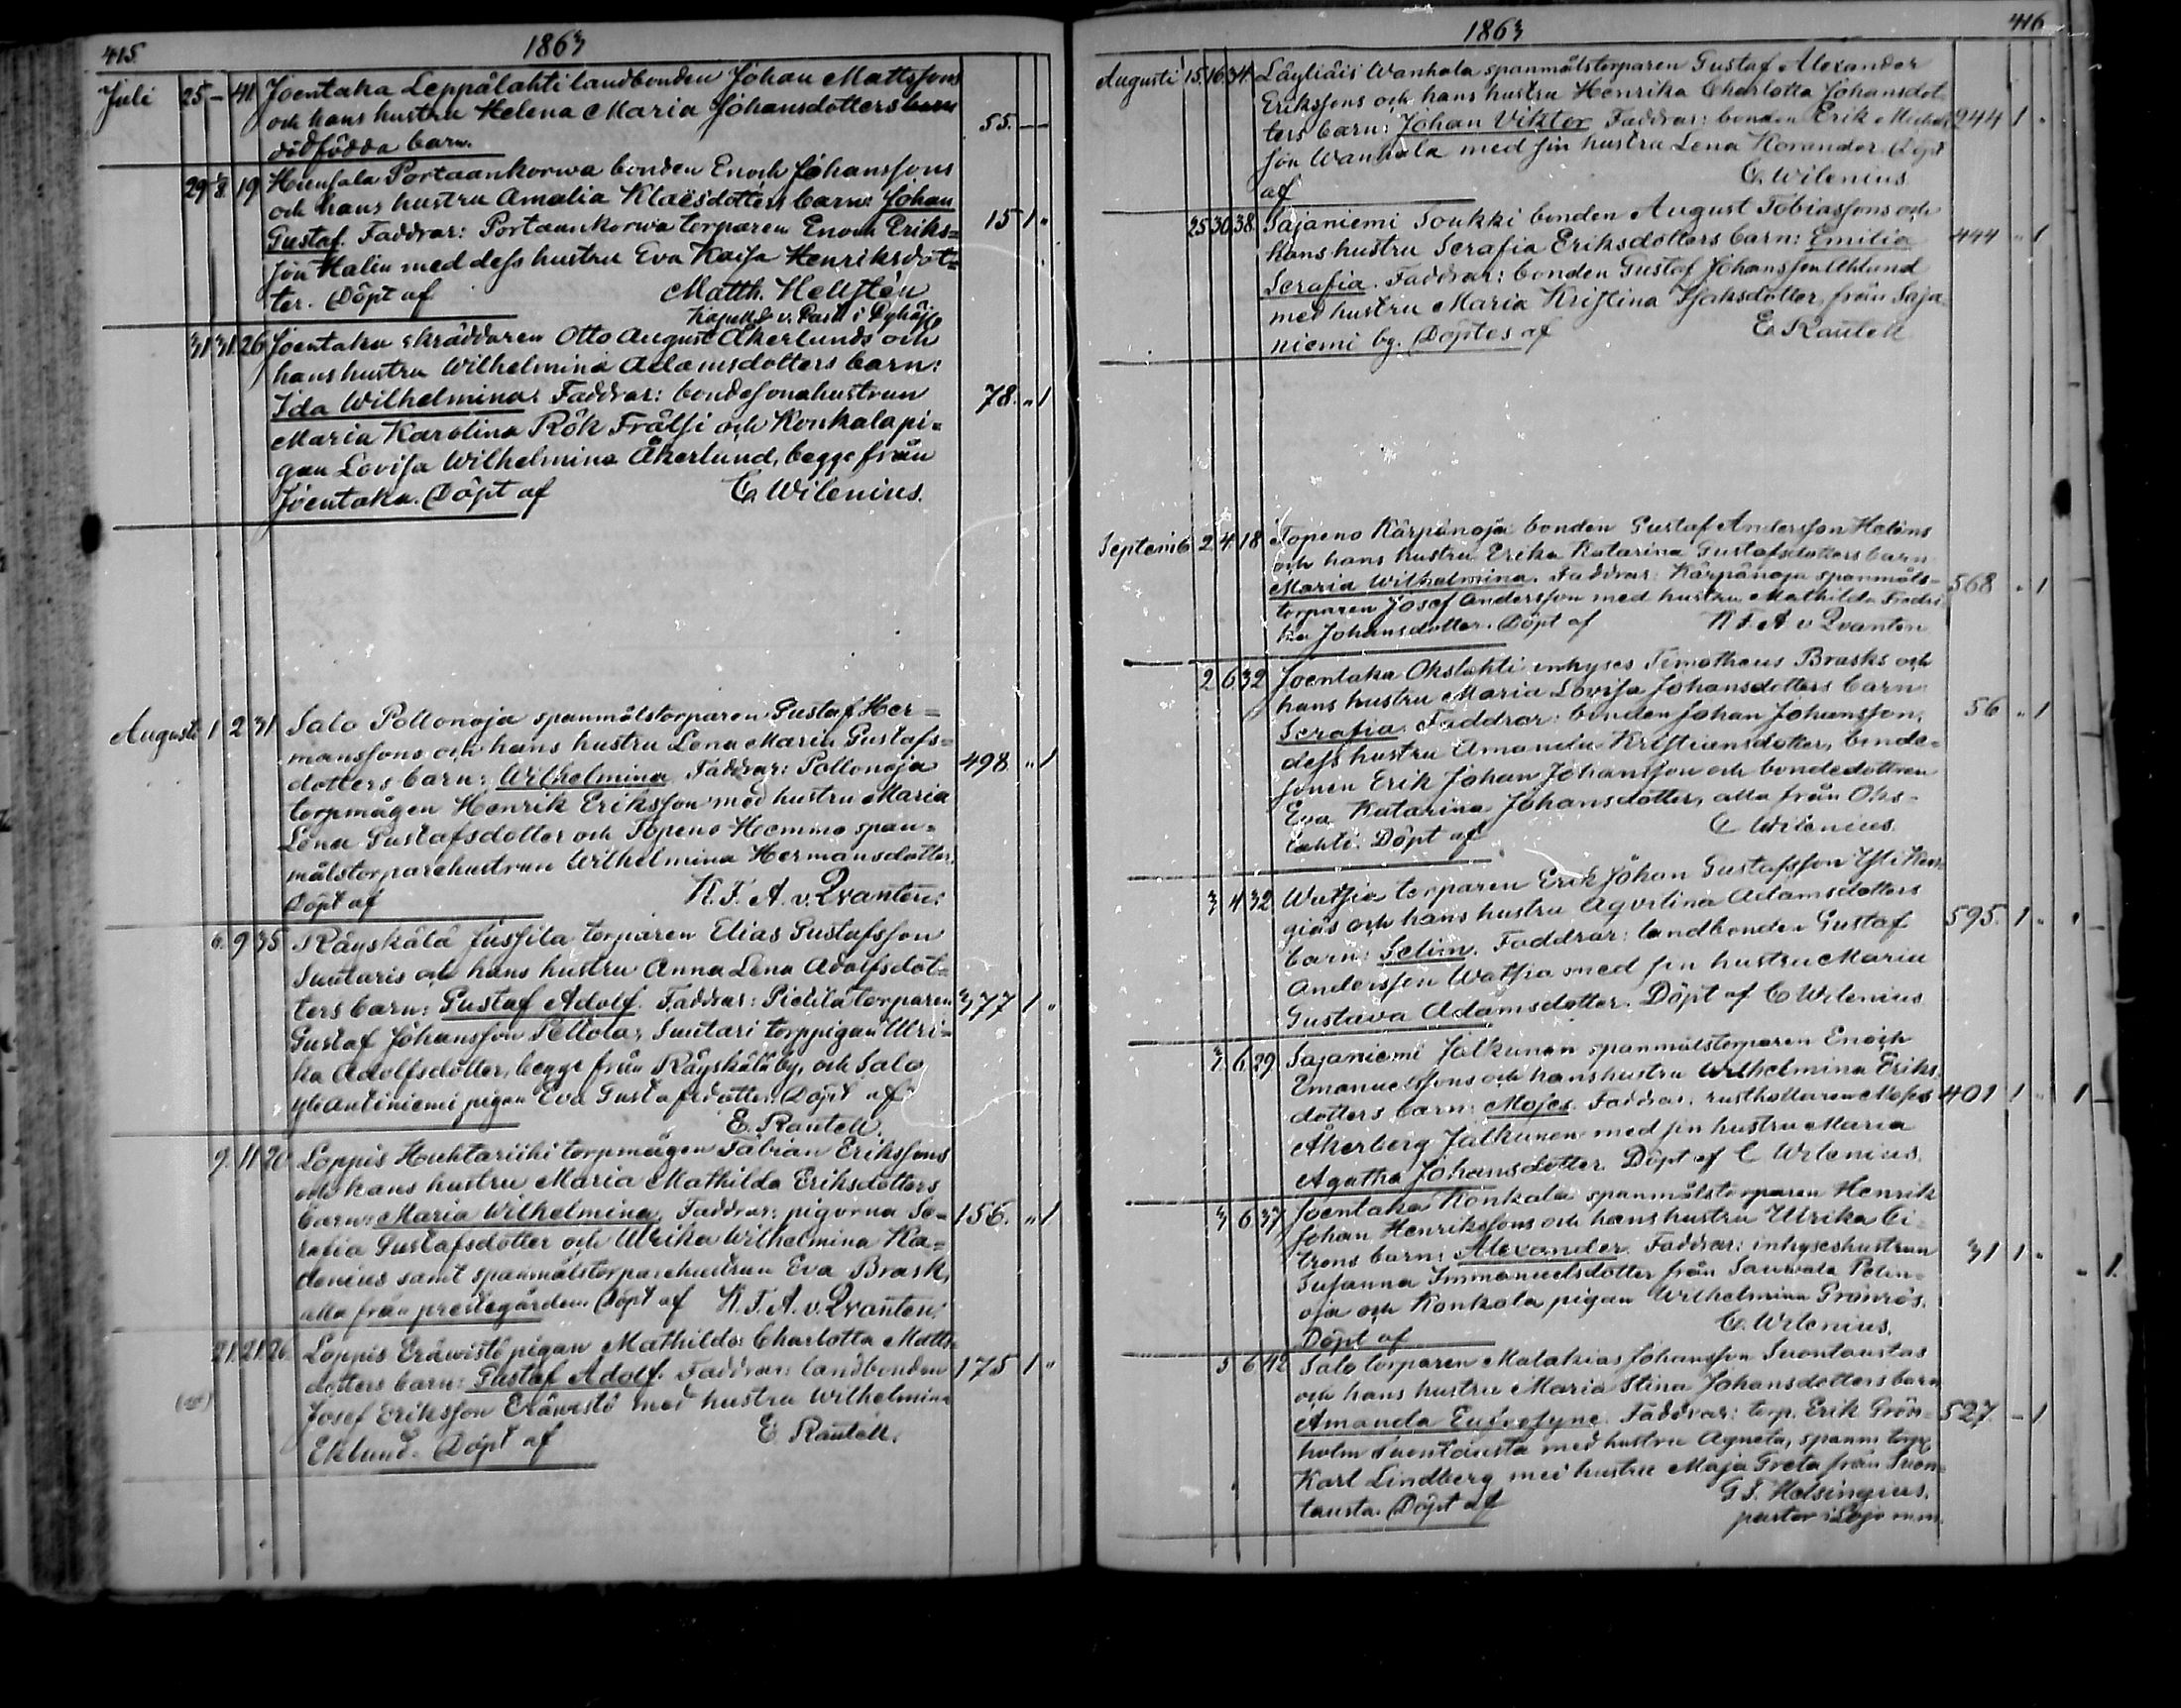 415.
1863
Juli 25 – 41 Joentaka Leppälahti landbonden Johan Mattssons
och hans hustru Helena Maria Johansdotters barn
dödfödda barn. 55. — —
29 8 19 Hunsala Portaankorwa bonden Enoch Johanssons
och hans hustru Amalia Klaësdotters barn: Johan
Gustaf. Faddrar: Portaankorwa torparen Enoch Eriks= 15 1 "
son Malin med dess hustru Eva Kaisa Henriksdot=
ter. Döpt af Matth. Hellstén
Kapell. v. Past. i
31 31 26 Joentaka skräddaren Otto August Åkerlunds och
hans hustru Wilhelmina Adamsdotters barn:
Ida Wilhelmina. Faddrar: bondesonahustrun 78. " 1
Maria Karolina Rök Frälsi och Konkala pi=
gan Lovisa Wilhelmina Åkerlund, begge från
Joentaka. Döpt af C. Wilenius.
Augusti 1 2 31 Salo Pollonoja spanmålstorparen Gustaf Her=
manssons och hans hustru Lena Maria Gustafs=
dotters barn: Wilhelmina Faddrar: Pollonoja 498 " 1
torpmågen Henrik Eriksson med hustru Maria
Lena Gustafsdotter och Topeno Hemmo span=
målstorparehustrun Wilhelmina Hermansdotter.
Döpt af K. F. A. v. Qvanten.
6. 9 35 Räyskälä Jussila torparen Elias Gustafsson
Suutaris och hans hustru Anna Lena Adolfsdot=
ters barn: Gustaf Adolf. Faddrar: Pietilä torparen 377 1 "
Gustaf Johansson Pellola, Suutari torppigan Ulri=
ka Adolfsdotter, begge från Räyskälä by, och Salo
Yliantiniemi pigan Eva Gustafsdotter. Döpt af
E. Rautell.
9. 11 20 Loppis Huhtariihi torpmågen Fabian Erikssons
och hans hustru Maria Mathilda Eriksdotters
barn: Maria Wilhelmina. Faddrar: pigorna Se= 156. " 1
rafia Gustafsdotter och Ulrika Wilhelmina Ka=
denius samt spanmålstorparehustrun Eva Brask,
alla från prestegården. Döpt af K. F. A. v. Qvanten.
21. 21. 26 Loppis Eräwistö pigan Mathilda Charlotta Matts=
dotters barn: Gustaf Adolf. Faddrar: landbonden 175 1 "
Josef Eriksson Eräwistö med hustru Wilhelmina
Eklund. Döpt af E. Rautell.
416
1863
Augusti 15. 16. 34. Läyliäis Wanhala spanmålstorparen Gustaf Alexander
Erikssons och hans hustru Henrika Charlotta Johansdot
ters barn: Johan Viktor Faddrar: bonden Erik 244 1 "
son Wanhala med sin hustru Lena Korander. Döpt
af C. Wilenius
25 30 38. Sajaniemi Toukki bonden August Tobiassons och
hans hustru Serafia Eriksdotters barn: Emilia 444 " 1
Serafia. Faddrar: bonden Gustaf Johansson Ahlund
med hustru Maria Kristina Isaksdotter, från Saja=
niemi by. Döptes af E. Rautell
Septemb 2 4 18 Topeno Kärpänoja bonden Gustaf Andersson Heléns
och hans hustru Erika Katarina Gustafsdotters barn
Maria Wilhelmina. Faddrar: Kärpänoja spanmåls= 568 " 1
torparen Josef Andersson med hustru Mathilda Fredri
ka Johansdotter. Döpt af K. F. A. v. Qvanten
2 6 32 Joentaka Okslahti inhyses Timotheus Brasks och
hans hustru Maria Lovisa Johansdotters barn
Serafia Faddrar: bonden Johan Johansson, 56 " 1
dess hustru Amanda Kristiansdotter, bonde=
sonen Erik Johan Johansson och bondedottren
Eva Katarina Johansdotter, alla från Oks=
lahti. Döpt af C. Wilenius.
3 4 32 Watsia torparen Erik Johan Gustafsson Yli
giäs och hans hustru Agvilina Adamsdotters
barn: Selim. Faddrar: landbonden Gustaf 595. 1 "
Andersson Watsia med sin hustru Maria
Gustava Adamsdotter. Döpt af C. Wilenius
3. 6 29 Sajaniemi Jalkunen spanmålstorparen Enoch
Emanuelssons och hans hustru Wilhelmina Eriks
dotters barn: Moses. Faddrar: rusthollaren Moses 401 1 " 1
Åkerberg Jalkunen med sin hustru Maria
Agatha Johansdotter. Döpt af C. Wilenius.
3 6 37 Joentaka Konkala spanmålstorparen Henrik
Johan Henrikssons och hans hustru Ulrika Ci=
trons barn: Alexander. Faddrar: inhyseshustrun 31 1 " " 1.
Susanna Immanuelsdotter från Sauwala Petin=
oja och Konkala pigan Wilhelmina Grönrös.
Döpt af C. Wilenius.
5 6 42 Salo torparen Malakias Johansson Suontaustas
och hans hustru Maria Stina Johansdotters barn
Amanda Eufrosyne. Faddrar: torp. Erik Grön= 527. – 1
holm Suontausta med hustru Agneta, spanm. torp.
Karl Lindberg med hustru Maja Greta från Suon=
tausta. Döpt af G. F. Helsingius.
pastor i Lojo m.m.